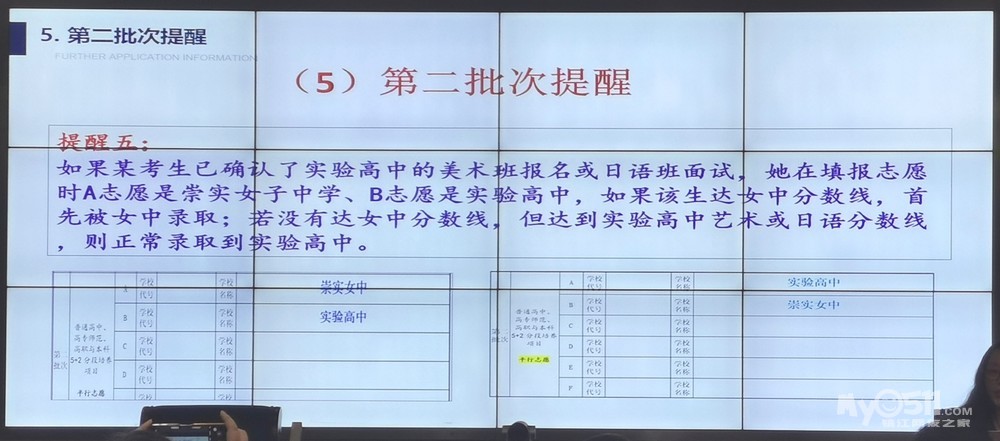 5. 第二批次提醒
FURTHER APPLICATION INFORMATION
（5）第二批次提醒
提醒五：
如果某考生已确认了实验高中的美术班报名或日语班面试，她在填报志愿
时A志愿是崇实女子中学、B志愿是实验高中，如果该生达女中分数线，首
先被女中录取；若没有达女中分数线，但达到实验高中艺术或日语分数线
，则正常录取到实验高中。
学校代号 学校名称 崇实女中
B 学校代号 学校名称 实验高中
C 学校代号 学校名称
D 学校代号 学校名称
学校代号 学校名称
普通高中、
高专师范、
高职与本科
5+2分段培养
项目
平行志愿
A 学校代号 学校名称 实验高中
B 学校代号 学校名称 崇实女中
C 学校代号 学校名称
D 学校代号 学校名称
E 学校代号 学校名称
F 学校代号 学校名称
普通高中、
高专师范、
高职与本科
5+2分段培养
项目
平行志愿